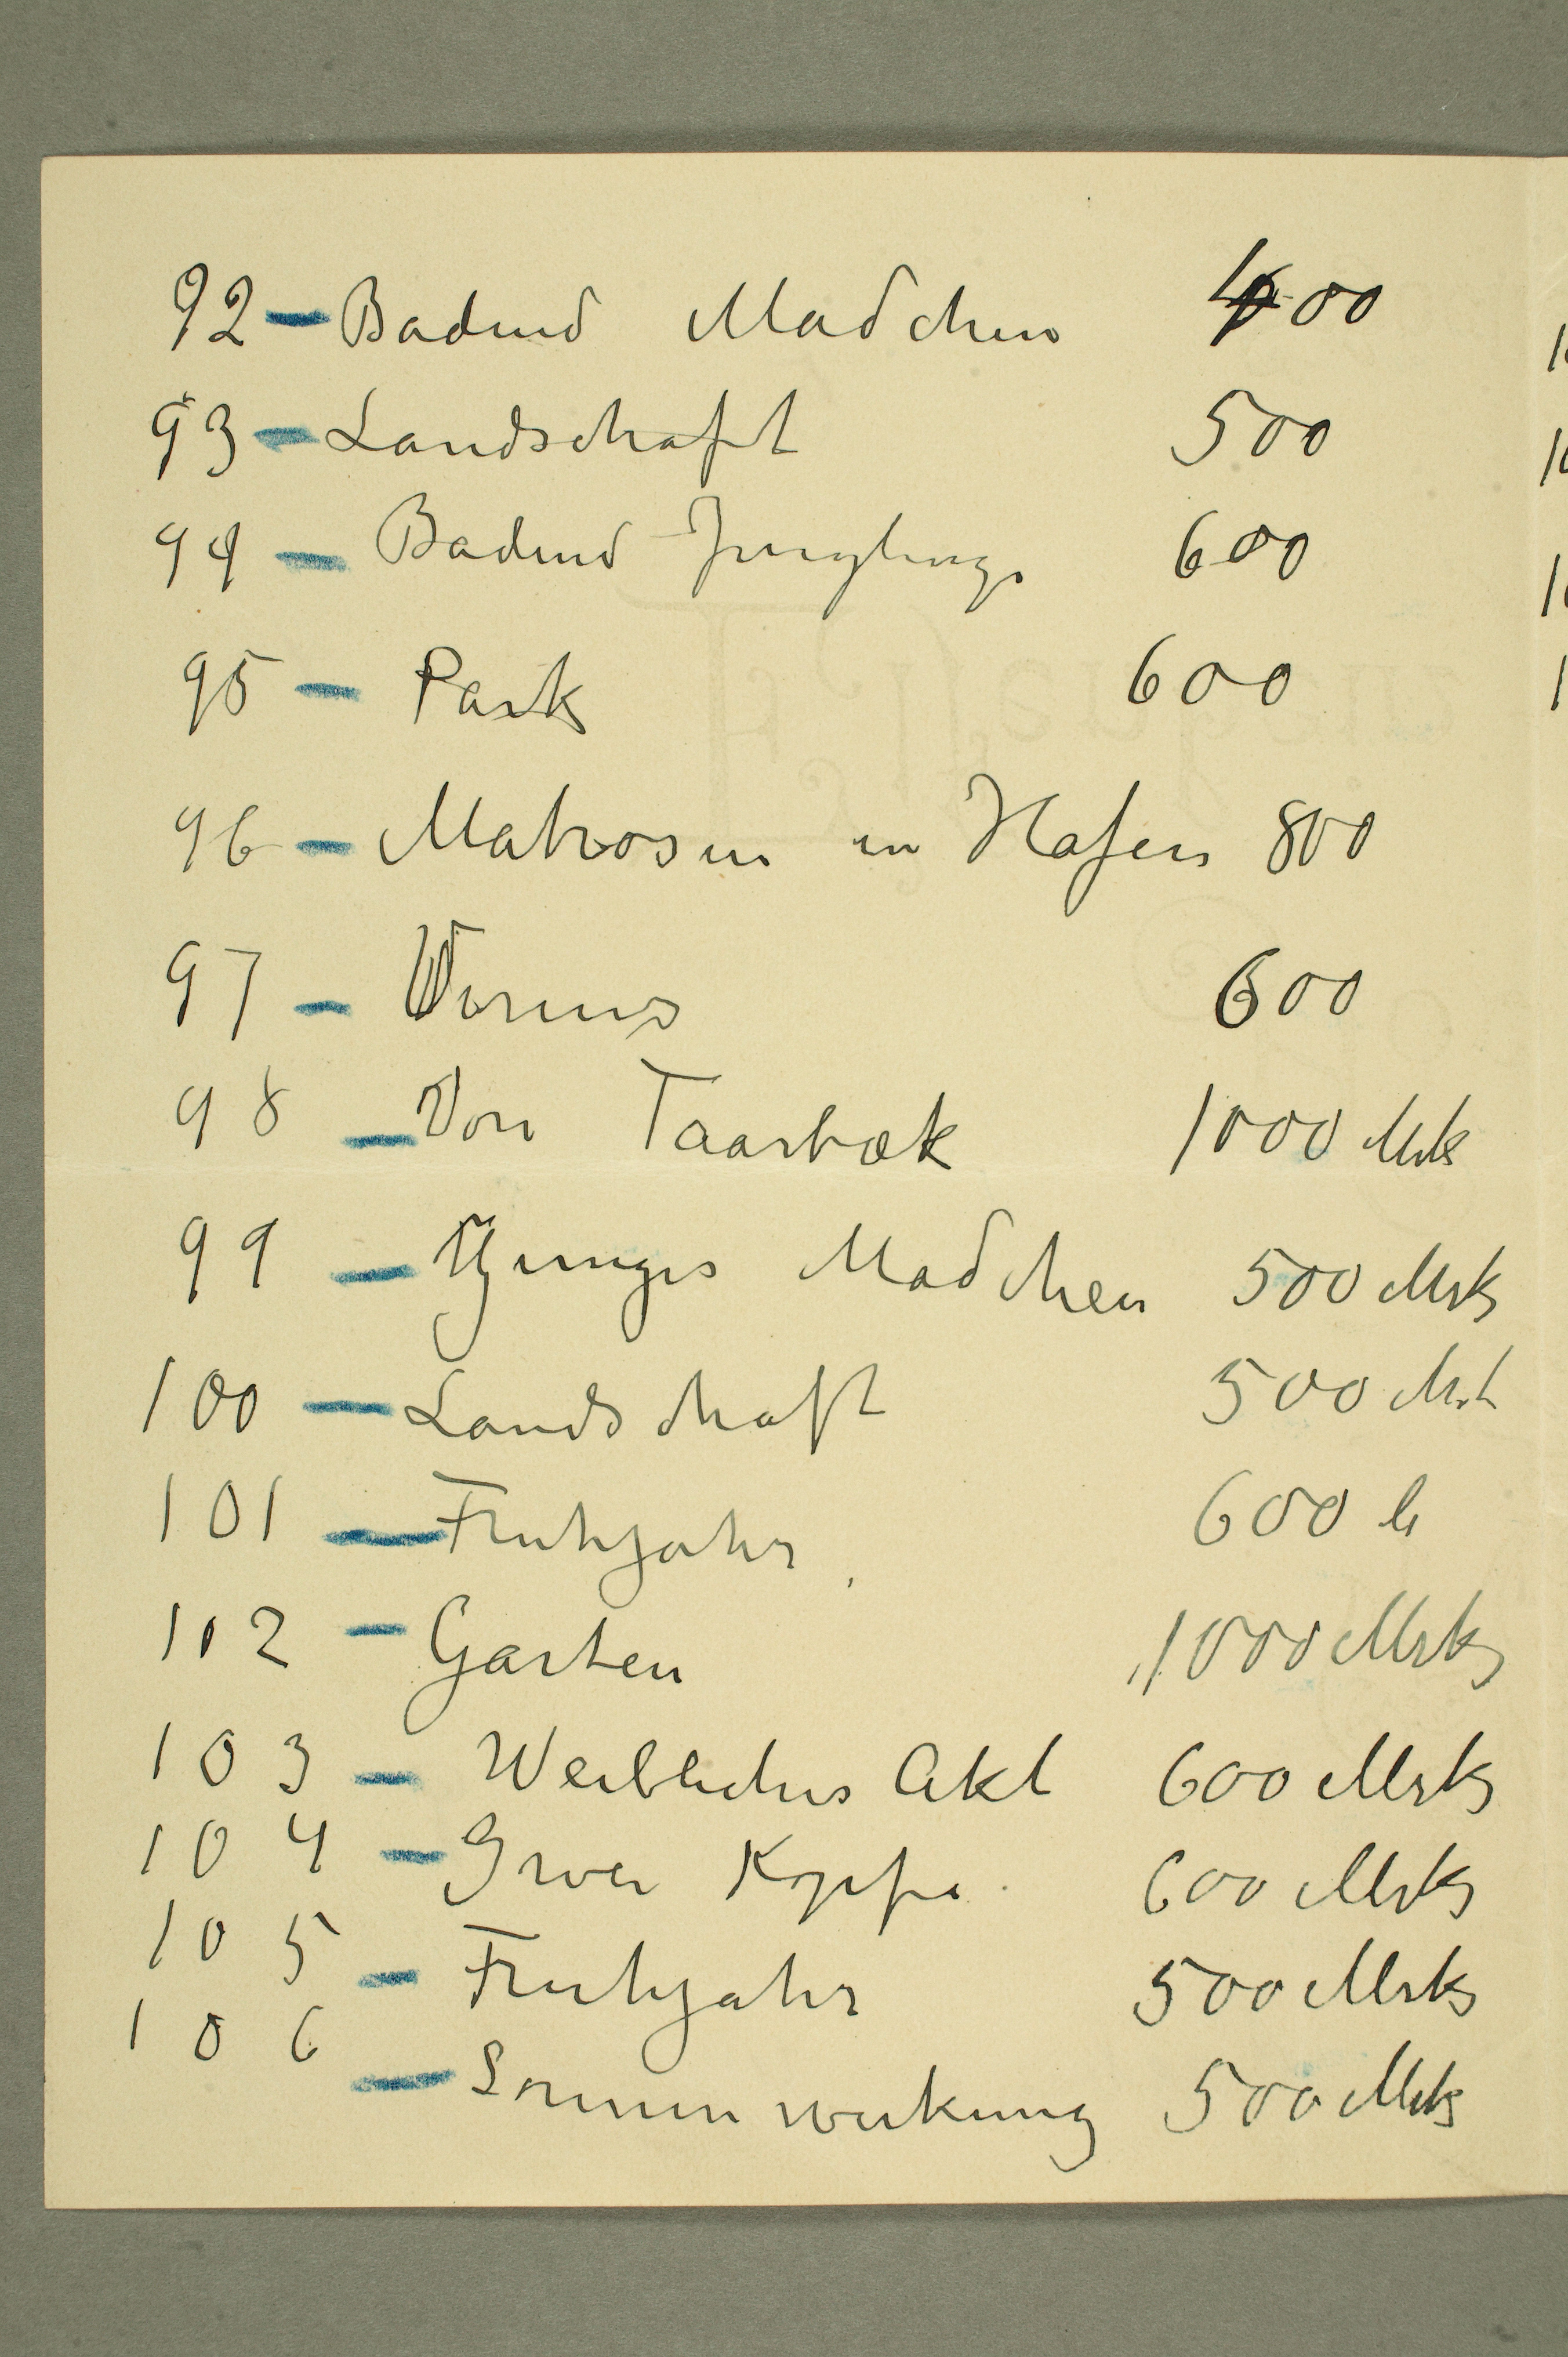 92 – Badend Madchen 400
93 – Landschaft 500
94 – Badend Junglinge 600
95 – Park 600
96 – Matrosen in Hafen 800
97 – 600
98 – Von Taarbæk 1000 Mrk
99 – Junges Madchen 500 Mrk
100 – Landschaft 500 Mrk
101 – Fruhjahr 600
102 – Garten 1000 Mrk
103 – Weibliches Akt 600 Mrk
104 – Zwei Kopfe 600 Mrk
105 – Fruhjahr 500 Mrk
106 – Sonnenwirkung 500 Mrk